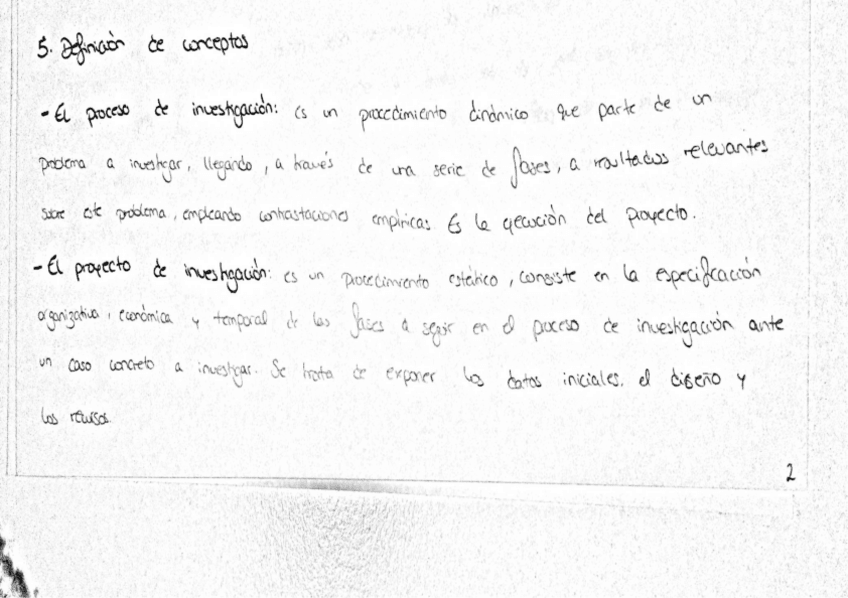 5. Definición de conceptos
- El proceso de investigación: es un procedimiento dinámico que parte de un
problema a investigar, llegando, a través de una serie de fases, a resultados relevantes
sobre este problema, empleando contrastaciones empíricas. Es la ejecución del proyecto.
- El proyecto de investigación: es un procedimiento estático, consiste en la especificación
organizativa, económica y temporal de las fases a seguir en el proceso de investigación ante
un caso concreto a investigar. Se trata de exponer los datos iniciales, el diseño y
los recursos.
2